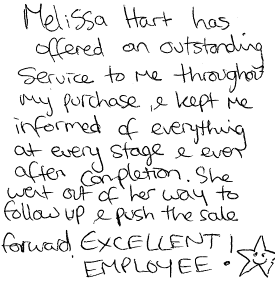 Melissa Hart has
offered an outstanding
service to me throughout
my purchase, & kept me
informed of everything
at every stage & even
after completion. She
went out of her way to
follow up & push the sale
forward. EXCELLENT!
EMPLOYEE.